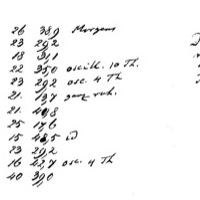 26 389 Morgens
23 292
18 311
22 350 oscill. 10 Th.
23 292 osc. 4 Th
21. 137 ganz ruh.
21. 408
25 176
15 485 id
23 292
16 427 osc. 4 Th
40 390